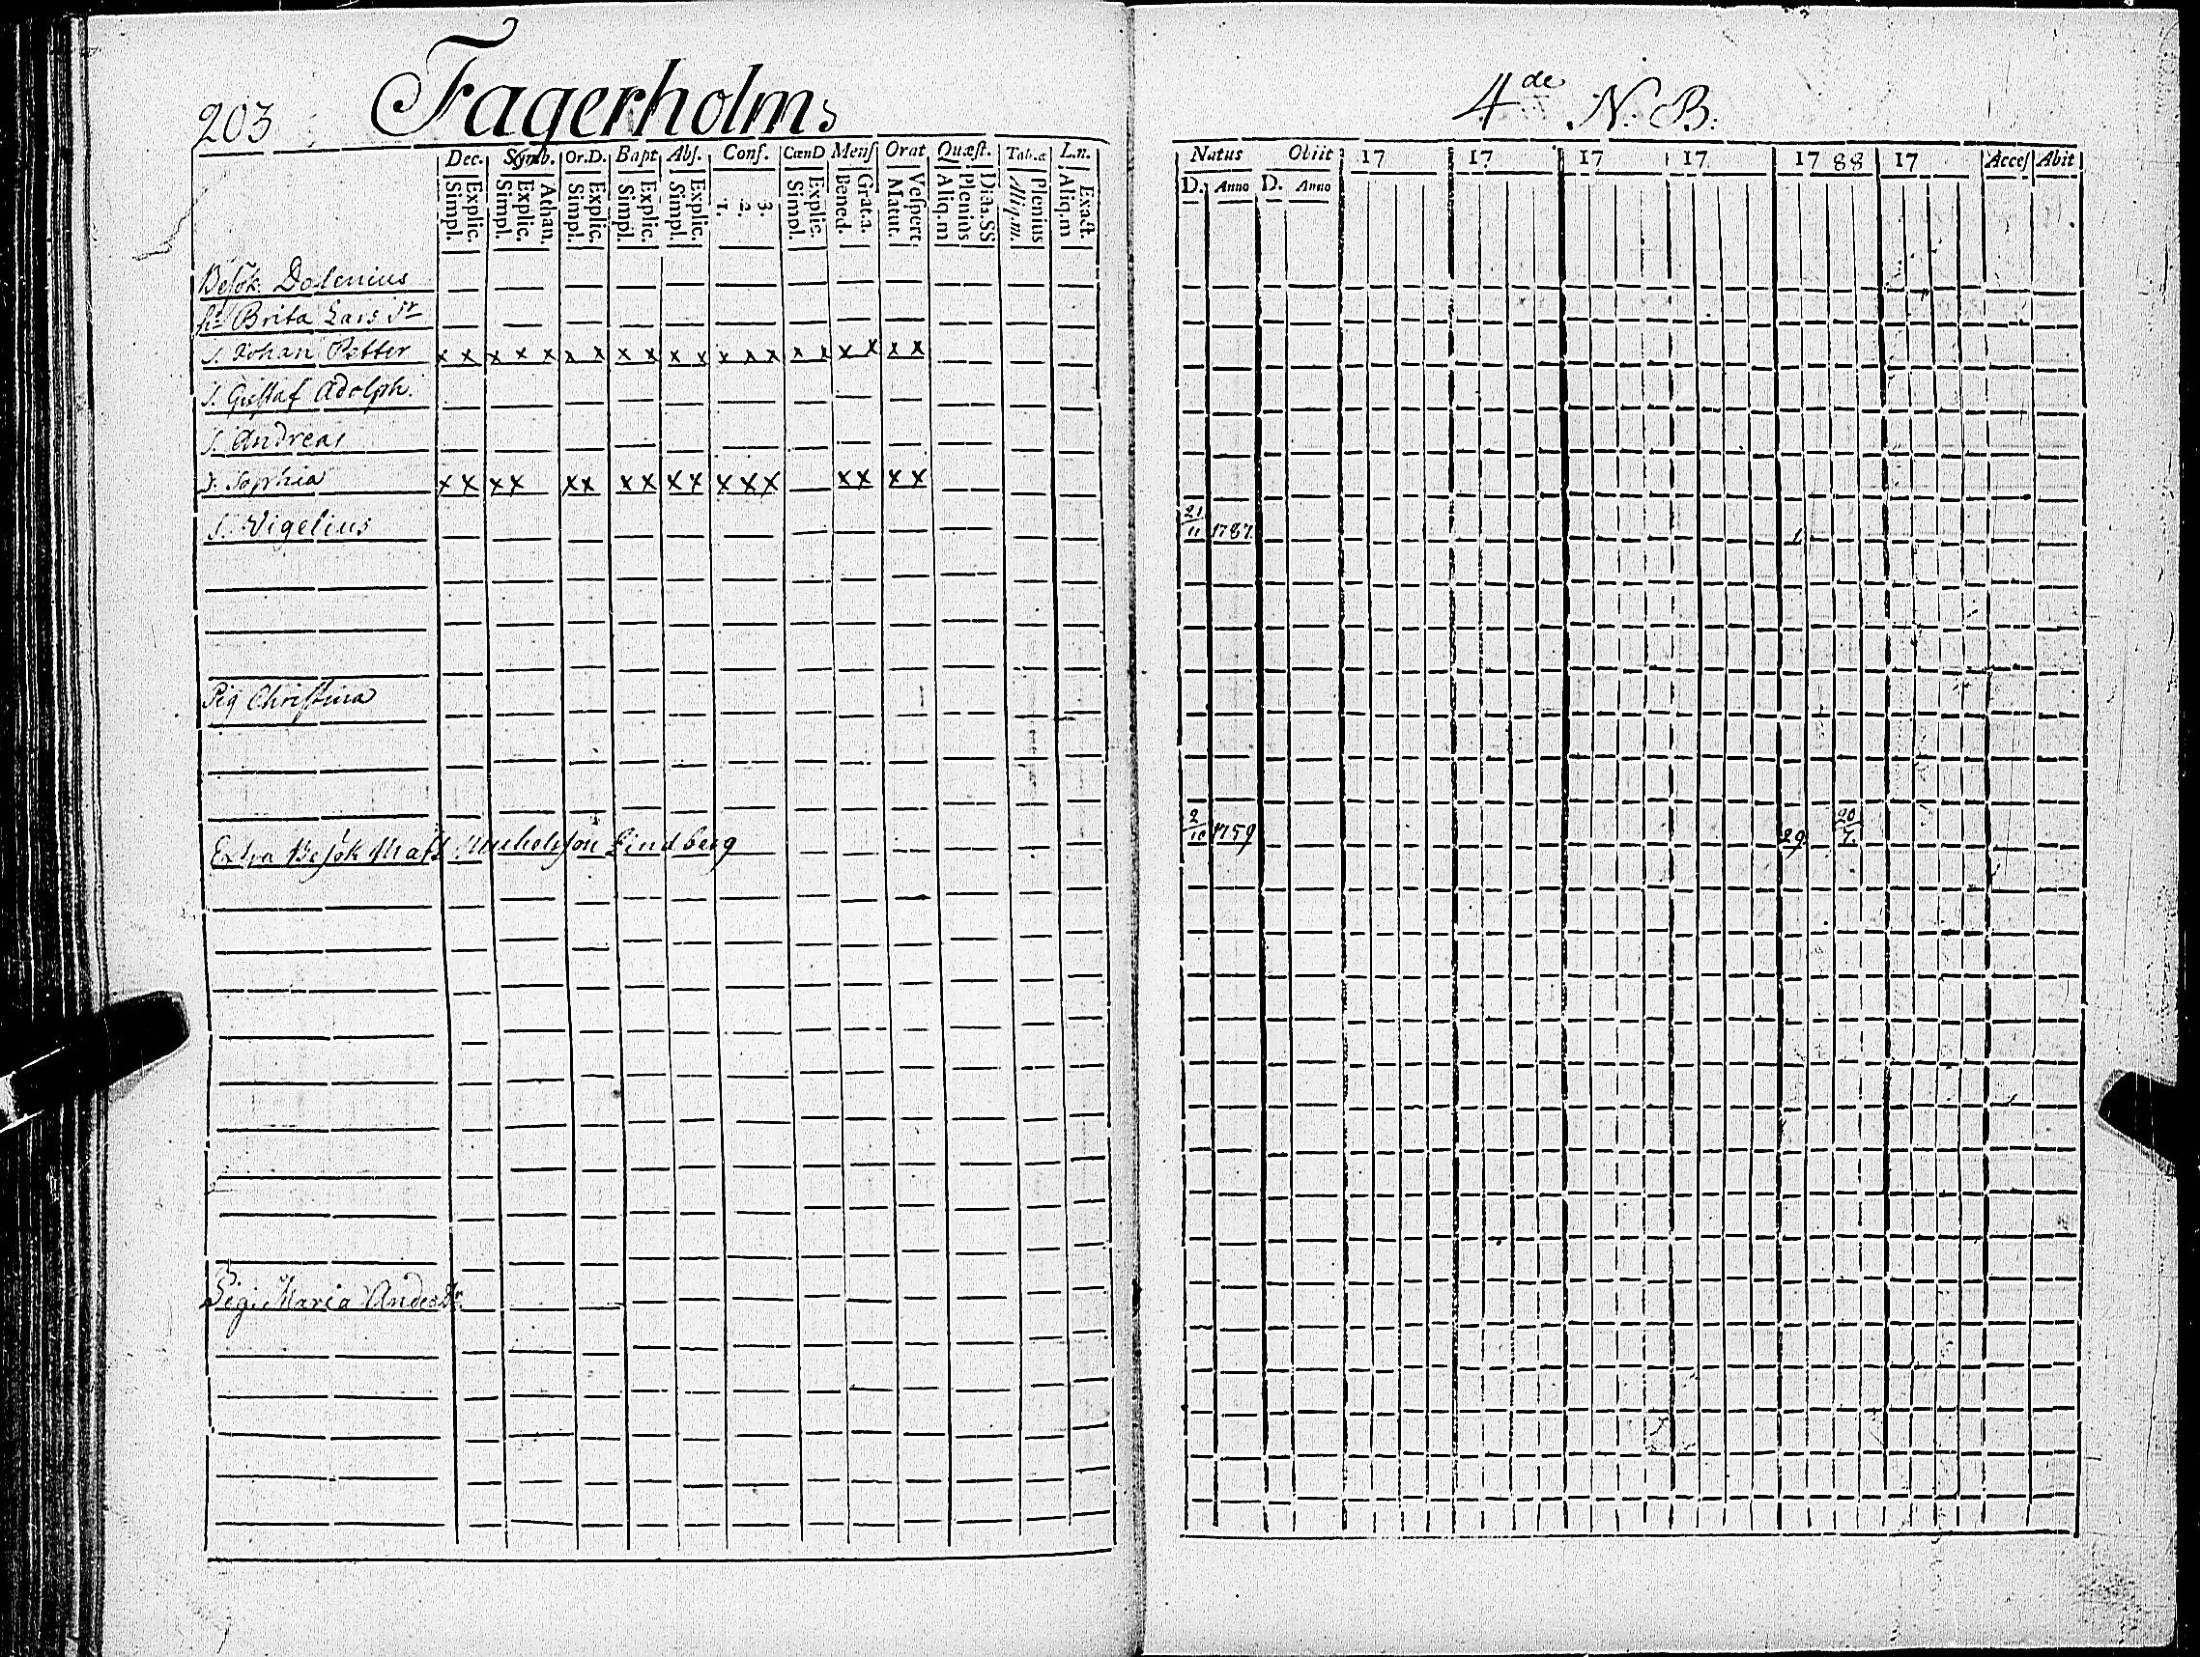 203 Fagerholms
4de N. B.
Dec. Symb. Or.D. Bapt Abſ. Conf. CœnD Menſ Orat Quæſt. Tab.æ L.n.
Simpl. Explic. Simpl. Explic. Athan. Simpl. Explic. Simpl. Explic. Simpl. Explic. 1. 2. 3. Simpl. Explic. Bened. Grat.a. Matut. Veſpert. Aliq.m Plenius D.a.SS Aliq.m. Plenius Aliq.m Exact.
Natus Obiit 17 17 17 17 17 88 17 Acceſ Abit
D. Anno D. Anno
Beſök. Dalenius
hu Brita Lars dr
S. Johan Petter x x x x x x x x x x x x x x x x x x x x
S. Guſtaf Adolph.
S. Andreas
D. Sophia x x x x x x x x x x x x x x x x x
S. Vigelius 21/11 1787. 1
Pig Chriſtina
Extra Beſök Matſ Lindberg 2/10 1759 29 20/7.
Pig. Maria Anders dr